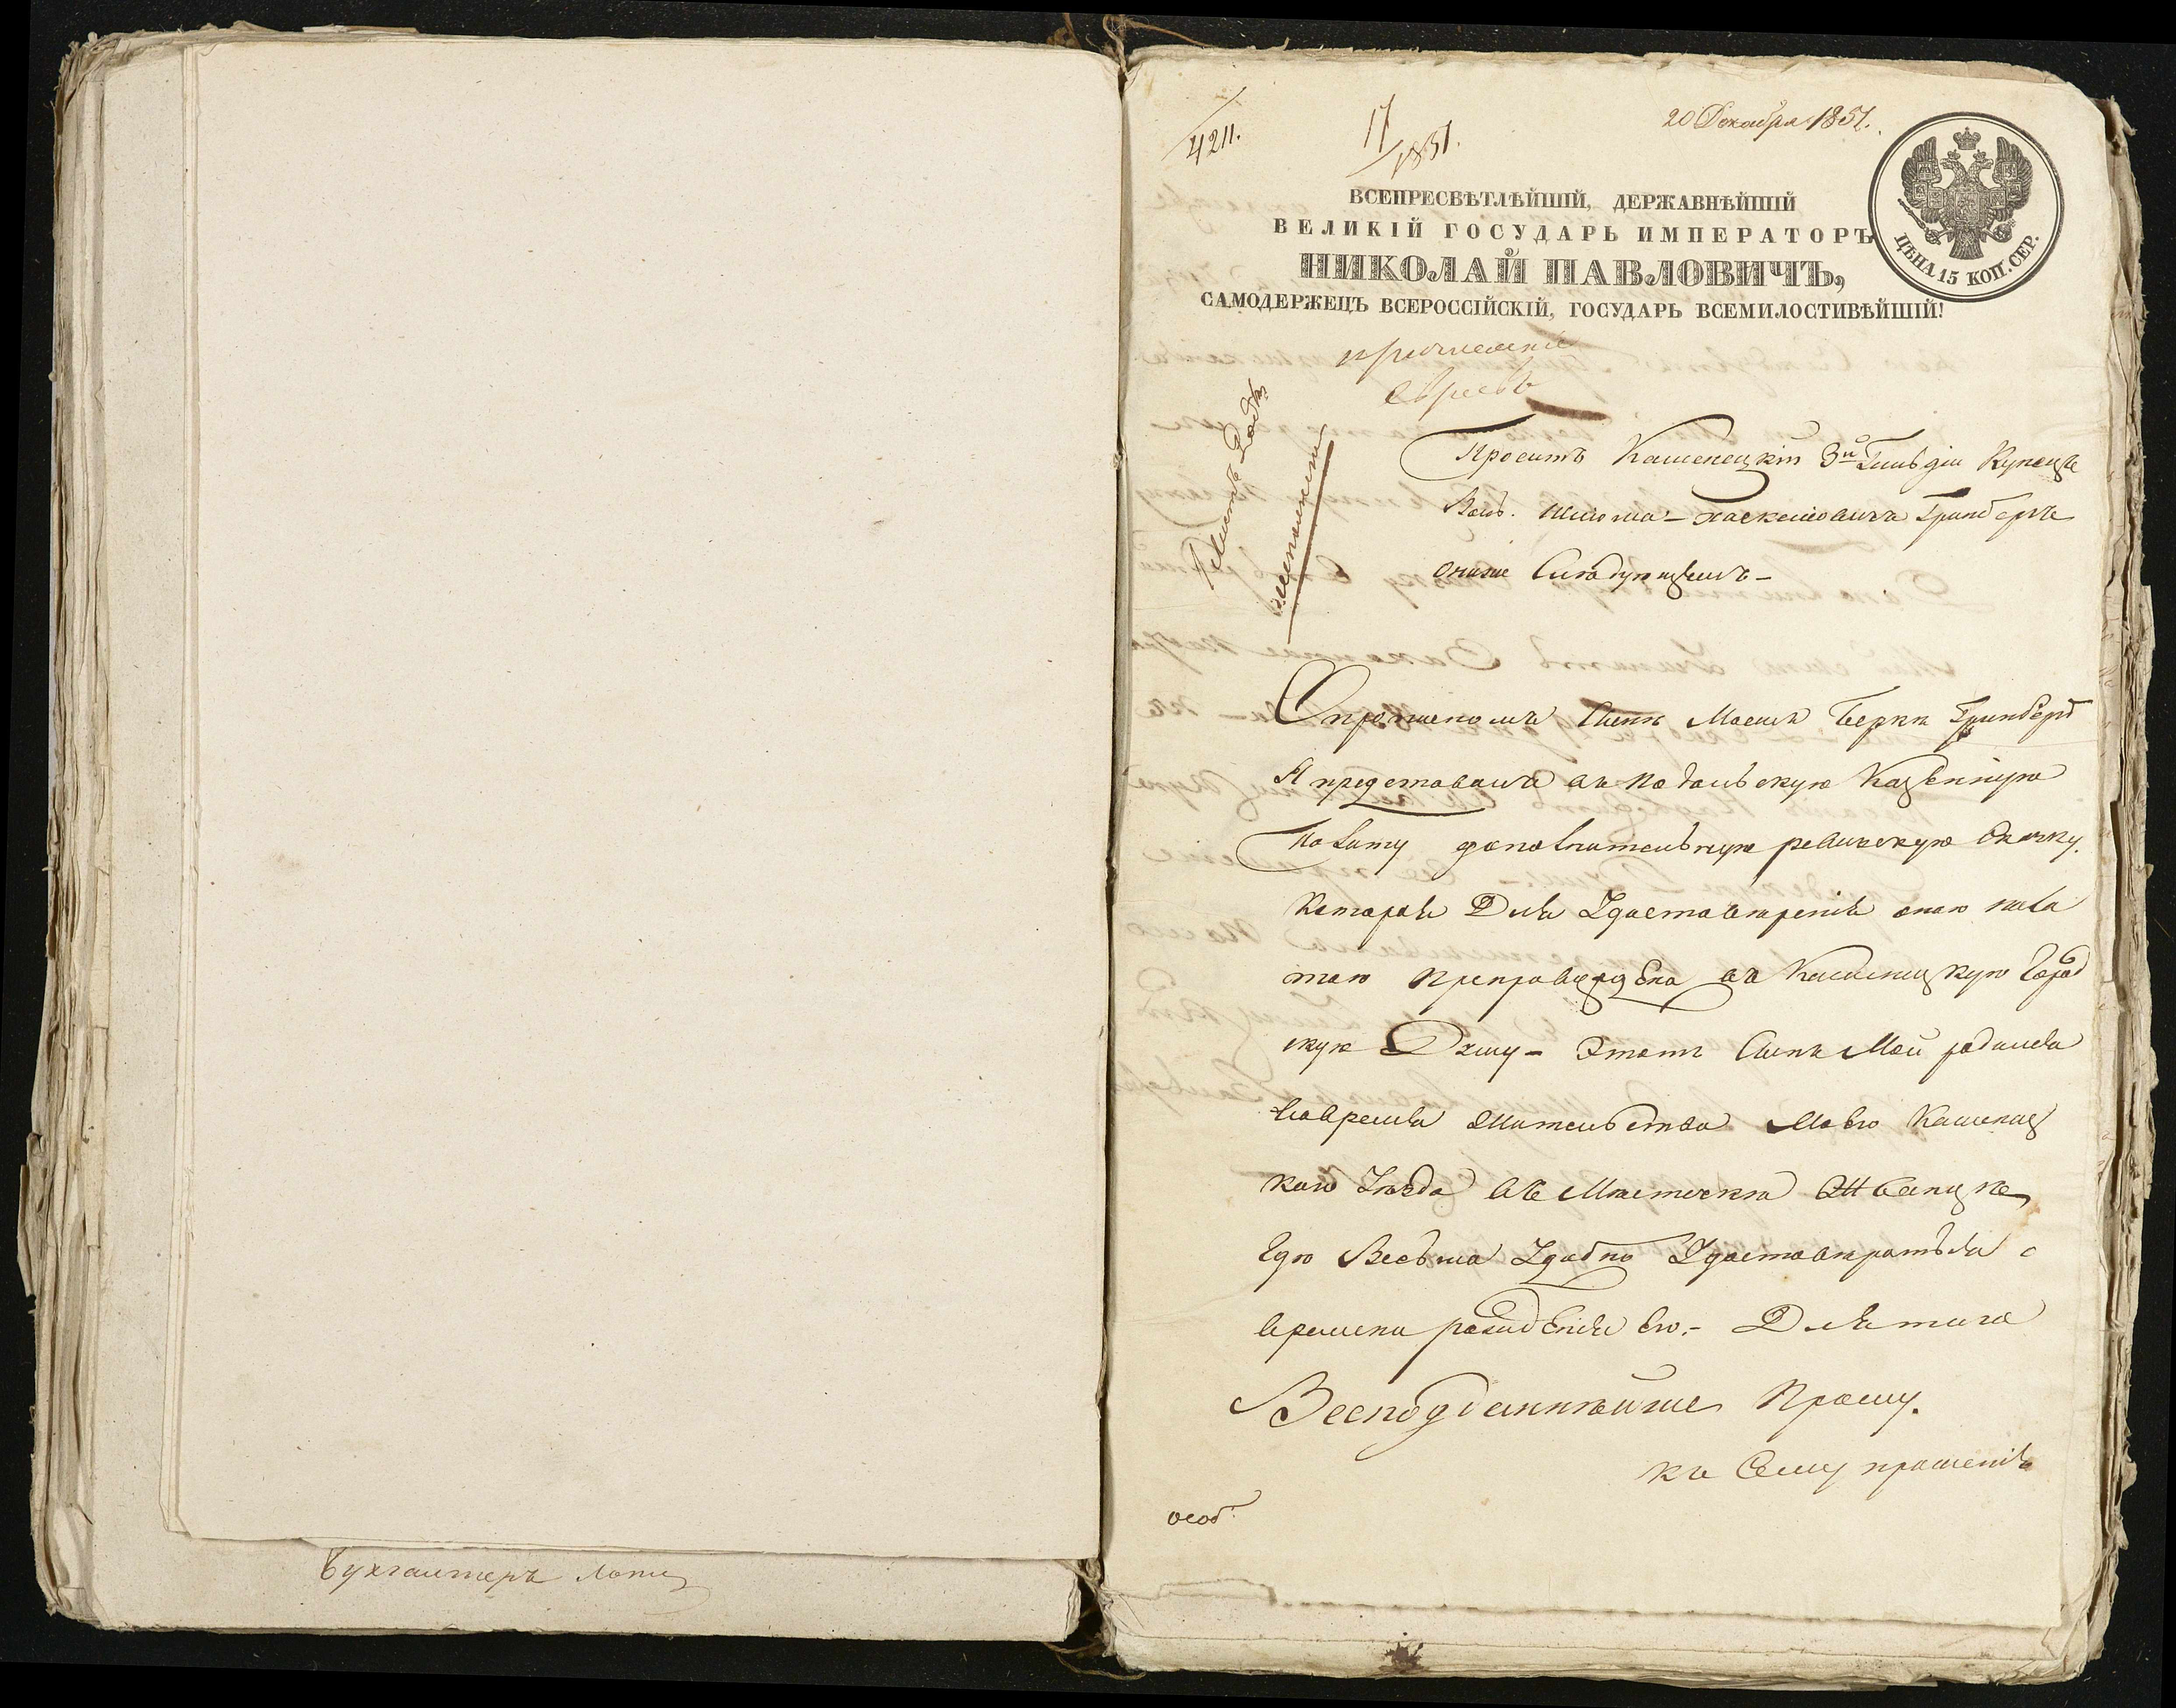 Бухгалтеръ
4211.
17
1851.
20 Декабря 1851.
ЦѢНА 15 КОП. СЕР.
ВСЕПРЕСВѢТЛѢЙШІЙ, ДЕРЖАВНѢЙШІЙ
ВЕЛИКІЙ ГОСУДАРЬ ИМПЕРАТОРЪ
НИКОЛАЙ ПАВЛОВИЧЪ,
САМОДЕРЖЕЦЪ ВСЕРОССІЙСКІЙ, ГОСУДАРЬ ВСЕМИЛОСТИВѢЙШІЙ!
о причисленіи
Евреевъ
Проситъ Каменецкій 3й Гильдіи Купецъ
Гринбергъ
Следующемъ -
Опропиленомъ Сынѣ Моемъ Беркѣ Гринберг
Я представилъ въ Подольскую Казенную
Полату дополнительную ревизскую Скаску.
Которая Для Удостоверенія оною пала
тою препровождена въ Каменецкую Город
скую Думу - Этотъ Сынъ Мой родился
вовремя Жительства Моего Каменец
кого Уезда въ Местечкѣ Жванцѣ
Где Весьма Удобно Удостоверится о
времени рожденія его.- Для того
Всеподданнѣйше Прошу.
къ Сему прошенію
особ.